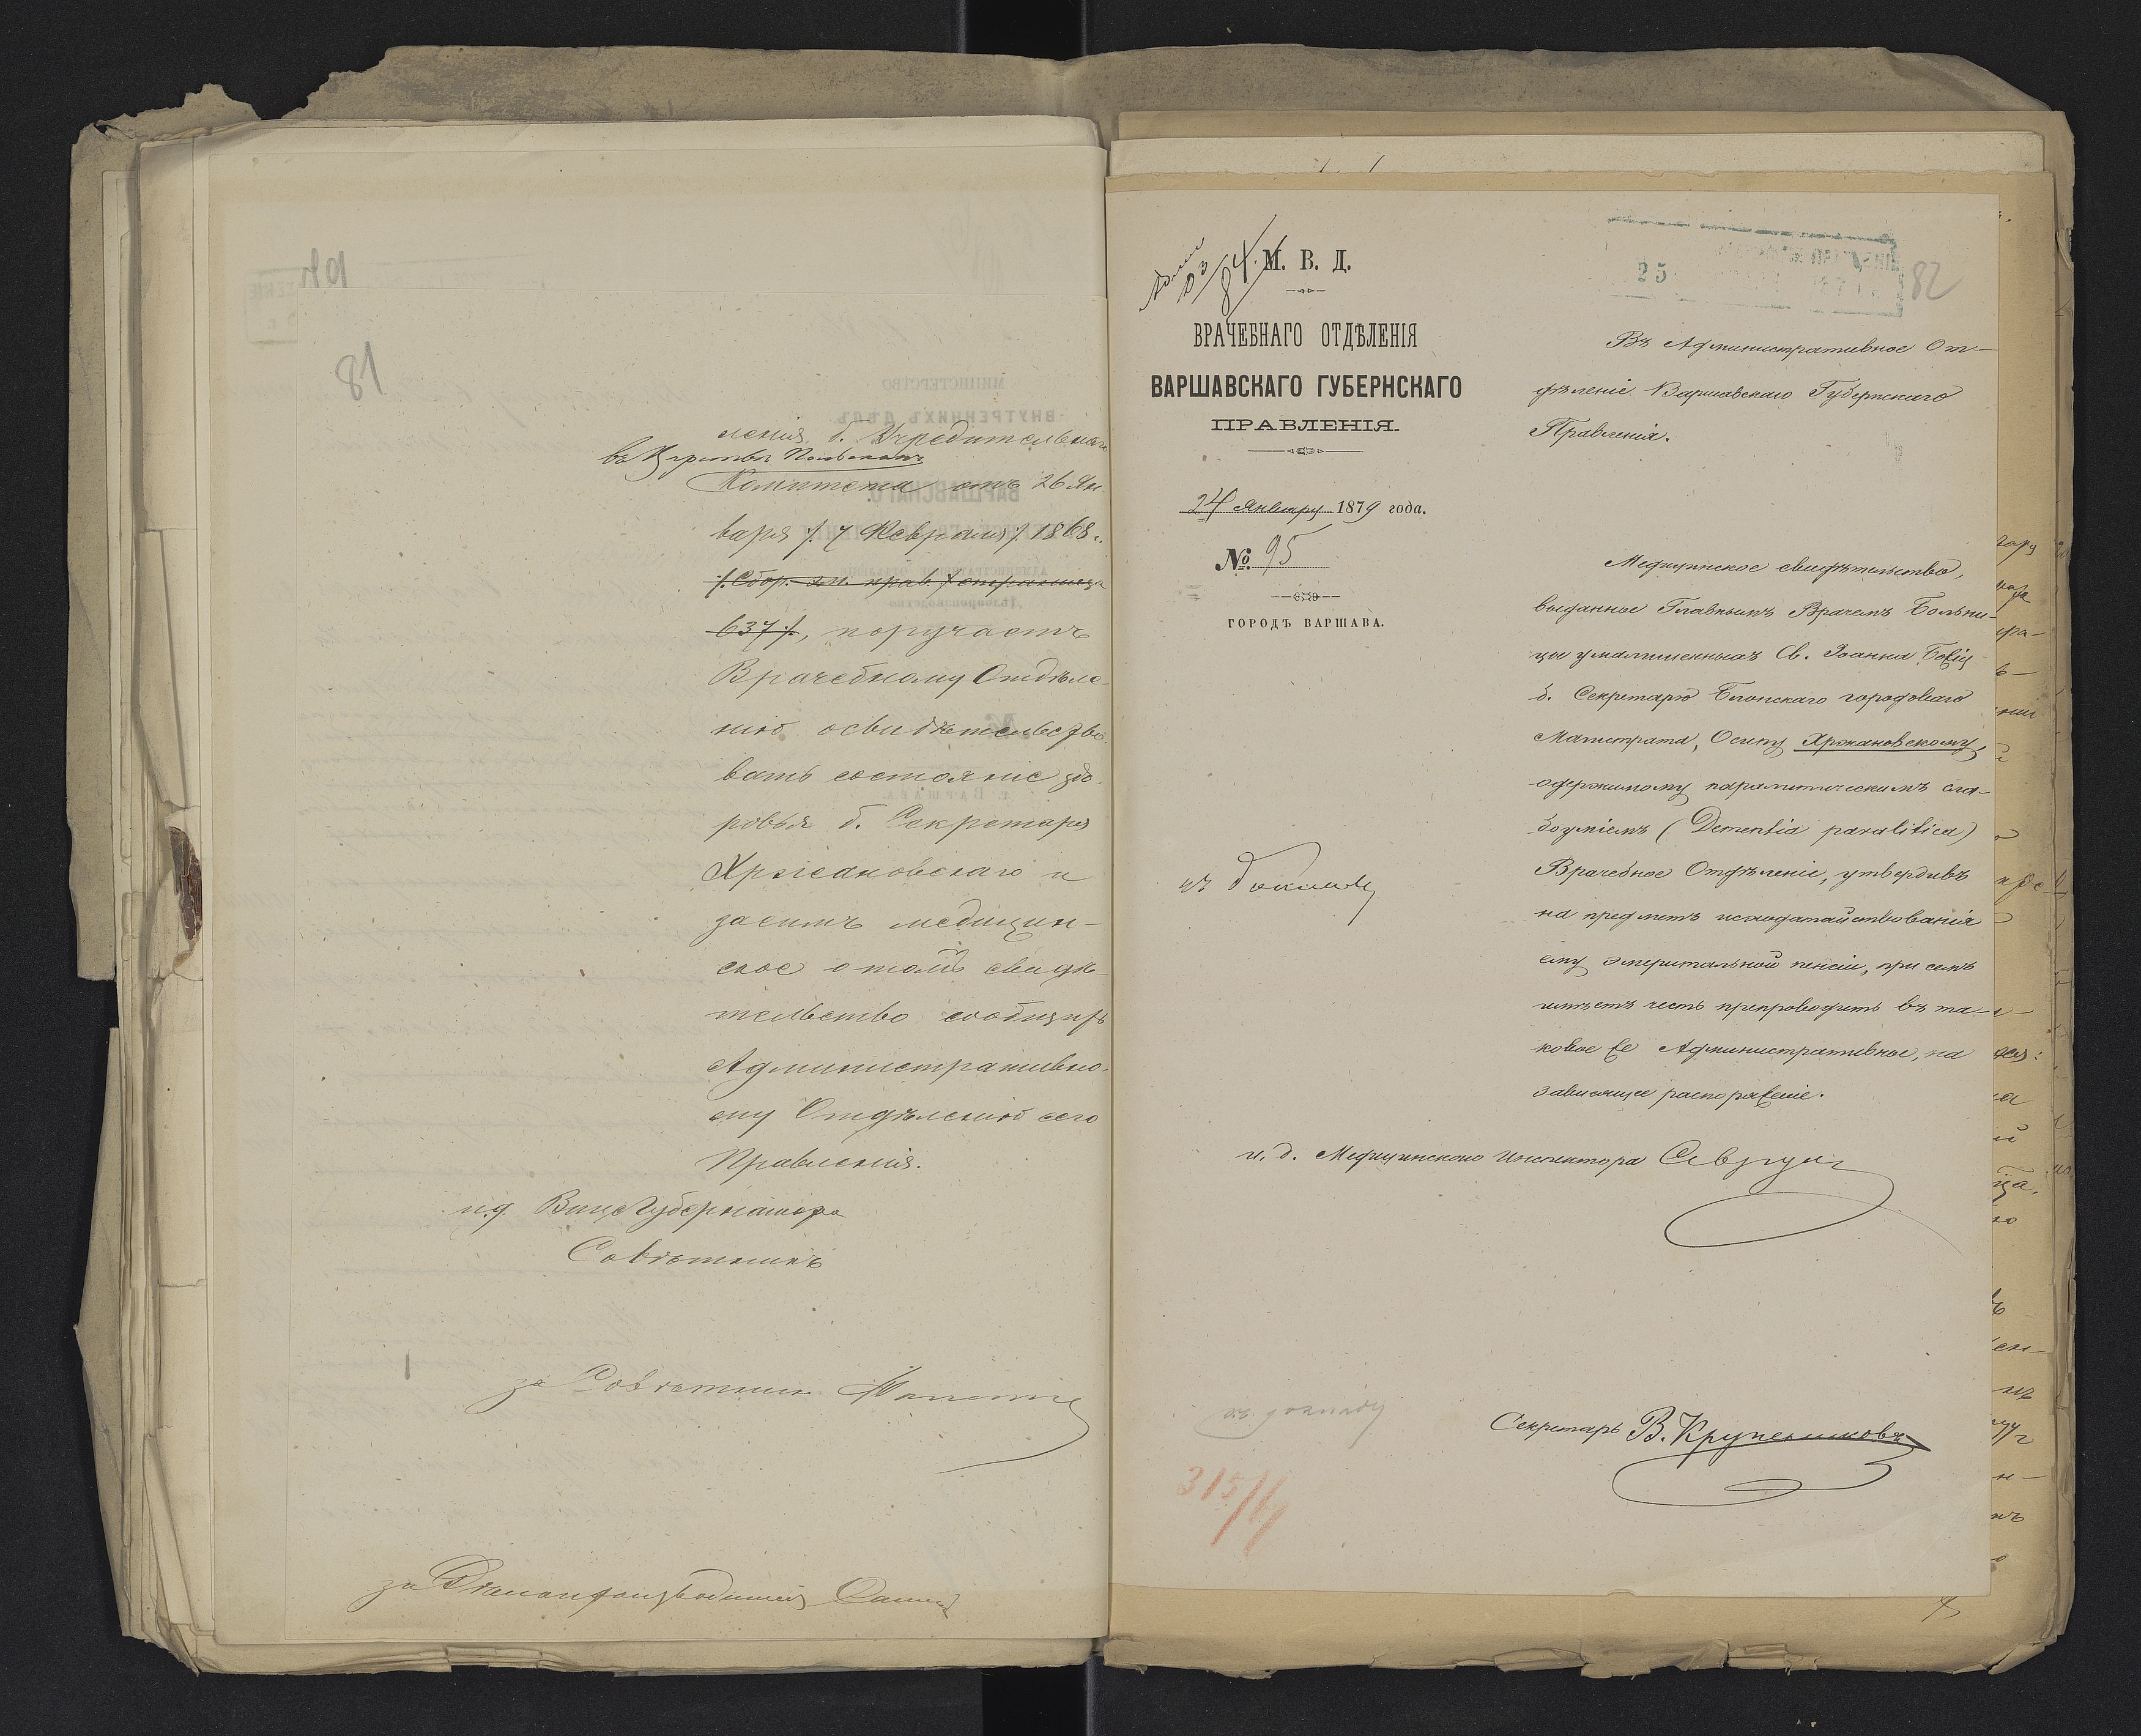 81
ленія, б. Учредительнаго
въ Царствѣ Польскомъ
Комитета отъ 26 Ян
варя /. 7 Февраля /. 1868 г.
637 /., поручаетъ
Врачебному Отдѣле-
нію освидѣтельство-
вать состояніе здо-
ровья б. Секретаря
Хржановскаго и
засимъ медицин-
ское о томъ свидѣ-
тельство сообщить
Административно-
му Отдѣленію сего
Правленія.
и.д. Вице Губернатора
Совѣтникъ
за Совѣтника
за Дѣлопроизводителя
82
25
М. В. Д.
ВРАЧЕБНАГО ОТДѢЛЕНІЯ
ВАРШАВСКАГО ГУБЕРНСКАГО
ПРАВЛЕНІЯ.
24 Января 1879 года.
№ 95
ГОРОДЪ ВАРШАВА.
Въ Административное От-
дѣленіе Варшавскаго Губернскаго
Правленія.
Медицинское свидѣтельство,
выданное Главнымъ Врачемъ Больни-
цы умалишенныхъ Св. Іоанна Божія
б. Секретарю Блонскаго городоваго
Магистрата, Осипу Хржановскому,
одержимому паралитическимъ сла-
боуміемъ (Dementia paralitica)
Врачебное Отдѣленіе, утвердивъ
на предметъ исходатайствованія
ему эмеритальной пенсіи, при семъ
имѣетъ честь препроводить въ та-
ковое же Административное, на
зависящее распоряженіе.
къ докладу
и. д. Медицинскаго Инспектора
къ докладу
Секретарь В. Крупениковъ
315/